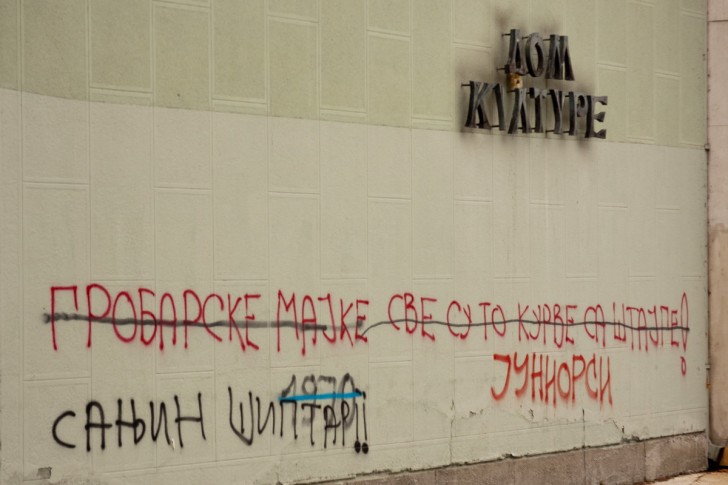 ДОМ
КУЛТУРЕ
ГРОБАРСКЕ МАЈКЕ СВЕ СУ ТО КУРВЕ СА ШТАЈГЕ!
ЈУНИОРСИ
1970
САЊИН ШИПТАР!!